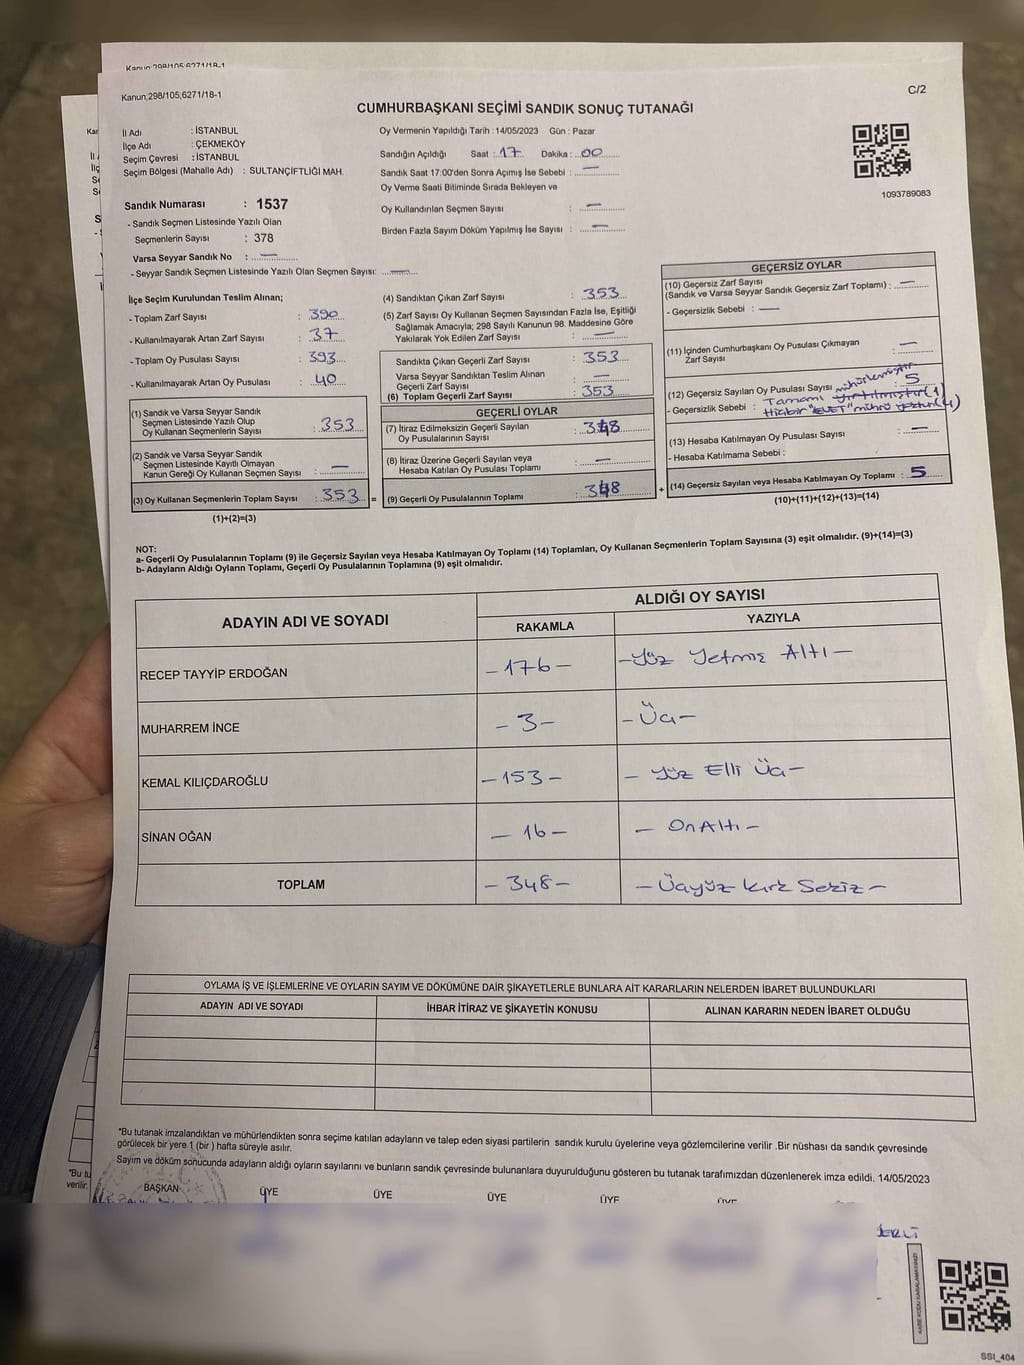 Kanun;298/105;6271/18-1
Kanun;298/105;6271/18-1
C/2
CUMHURBAŞKANI SEÇİMİ SANDIK SONUÇ TUTANAĞI
İl Adı : İSTANBUL
İlçe Adı : ÇEKMEKÖY
Seçim Çevresi : İSTANBUL
Seçim Bölgesi (Mahalle Adı) : SULTANÇİFTLİĞİ MAH.
Sandık Numarası : 1537
- Sandık Seçmen Listesinde Yazılı Olan
Seçmenlerin Sayısı : 378
Varsa Seyyar Sandık No : —
- Seyyar Sandık Seçmen Listesinde Yazılı Olan Seçmen Sayısı: —
Oy Vermenin Yapıldığı Tarih : 14/05/2023 Gün : Pazar
Sandığın Açıldığı Saat : 17 Dakika : 00
Sandık Saat 17:00'den Sonra Açımış İse Sebebi : —
Oy Verme Saati Bitiminde Sırada Bekleyen ve
Oy Kullandırılan Seçmen Sayısı : —
Birden Fazla Sayım Döküm Yapılmış İse Sayısı : —
1093789083
İlçe Seçim Kurulundan Teslim Alınan;
- Toplam Zarf Sayısı : 390
- Kullanılmayarak Artan Zarf Sayısı : 37
- Toplam Oy Pusulası Sayısı : 393
- Kullanılmayarak Artan Oy Pusulası : 40
(1) Sandık ve Varsa Seyyar Sandık
Seçmen Listesinde Yazılı Olup
Oy Kullanan Seçmenlerin Sayısı : 353
(2) Sandık ve Varsa Seyyar Sandık
Seçmen Listesinde Kayıtlı Olmayan
Kanun Gereği Oy Kullanan Seçmen Sayısı : —
(3) Oy Kullanan Seçmenlerin Toplam Sayısı : 353 =
(1)+(2)=(3)
(4) Sandıktan Çıkan Zarf Sayısı : 353
(5) Zarf Sayısı Oy Kullanan Seçmen Sayısından Fazla İse, Eşitliği
Sağlamak Amacıyla; 298 Sayılı Kanunun 98. Maddesine Göre
Yakılarak Yok Edilen Zarf Sayısı : —
Sandıkta Çıkan Geçerli Zarf Sayısı : 353
Varsa Seyyar Sandıktan Teslim Alınan
Geçerli Zarf Sayısı : —
(6) Toplam Geçerli Zarf Sayısı : 353
GEÇERLİ OYLAR
(7) İtiraz Edilmeksizin Geçerli Sayılan
Oy Pusulalarının Sayısı : 348
(8) İtiraz Üzerine Geçerli Sayılan veya
Hesaba Katılan Oy Pusulası Toplamı : —
(9) Geçerli Oy Pusulalarının Toplamı : 348 +
GEÇERSİZ OYLAR
(10) Geçersiz Zarf Sayısı
(Sandık ve Varsa Seyyar Sandık Geçersiz Zarf Toplamı) : —
- Geçersizlik Sebebi : —
(11) İçinden Cumhurbaşkanı Oy Pusulası Çıkmayan
Zarf Sayısı : —
(12) Geçersiz Sayılan Oy Pusulası Sayısı : 5
mühürlemiştir
- Geçersizlik Sebebi : Tamamı yırtılmıştır (1)
Hiçbir "EVET" mührü yoktur (4)
(13) Hesaba Katılmayan Oy Pusulası Sayısı : —
- Hesaba Katılmama Sebebi :
(14) Geçersiz Sayılan veya Hesaba Katılmayan Oy Toplamı : 5
(10)+(11)+(12)+(13)=(14)
NOT:
a- Geçerli Oy Pusulalarının Toplamı (9) ile Geçersiz Sayılan veya Hesaba Katılmayan Oy Toplamı (14) Toplamları, Oy Kullanan Seçmenlerin Toplam Sayısına (3) eşit olmalıdır. (9)+(14)=(3)
b- Adayların Aldığı Oyların Toplamı, Geçerli Oy Pusulalarının Toplamına (9) eşit olmalıdır.
ADAYIN ADI VE SOYADI
ALDIĞI OY SAYISI
RAKAMLA YAZIYLA
RECEP TAYYİP ERDOĞAN -176- -Yüz Yetmiş Altı-
MUHARREM İNCE -3- -Üç-
KEMAL KILIÇDAROĞLU -153- - Yüz Elli Üç-
SİNAN OĞAN - 16 - - On Altı -
TOPLAM - 348 - - Üçyüz Kırk Sekiz -
OYLAMA İŞ VE İŞLEMLERİNE VE OYLARIN SAYIM VE DÖKÜMÜNE DAİR ŞİKAYETLERLE BUNLARA AİT KARARLARIN NELERDEN İBARET BULUNDUKLARI
ADAYIN ADI VE SOYADI İHBAR İTİRAZ VE ŞİKAYETİN KONUSU ALINAN KARARIN NEDEN İBARET OLDUĞU
*Bu tutanak imzalandıktan ve mühürlendikten sonra seçime katılan adayların ve talep eden siyasi partilerin sandık kurulu üyelerine veya gözlemcilerine verilir .Bir nüshası da sandık çevresinde
görülecek bir yere 1 (bir ) hafta süreyle asılır.
Sayım ve döküm sonucunda adayların aldığı oyların sayılarını ve bunların sandık çevresinde bulunanlara duyurulduğunu gösteren bu tutanak tarafımızdan düzenlenerek imza edildi. 14/05/2023
BAŞKAN ÜYE ÜYE ÜYE ÜYE ÜYE
*Bu tu
verilir.
SSI_404